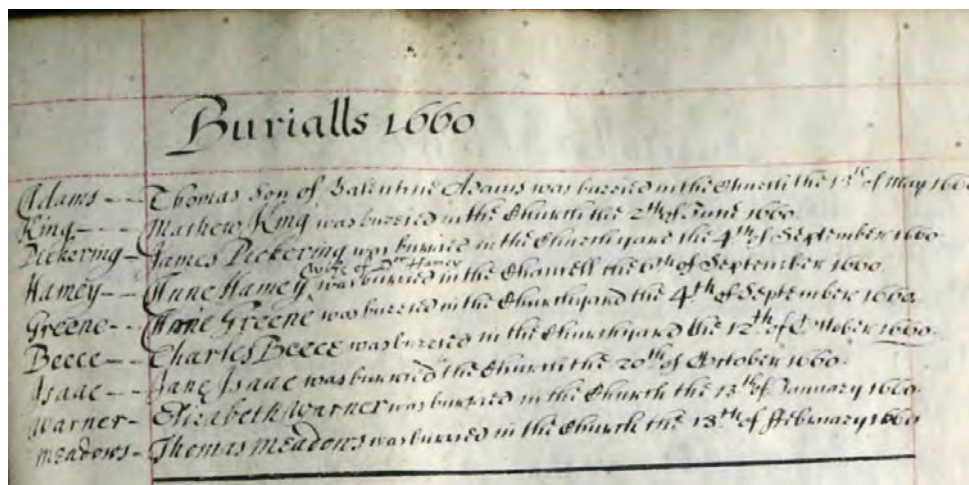 Burialls 1660
Adams -- Thomas Son of Valentine Adams was burried in the Church the 13th of May 1660
King --- Mathew King was burried in the Church the 2th of June 1660.
Pickering - James Pickering was burried in the Churchyard the 4th of September 1660
wife of Dr Hamey
Hamey -- Anne Hamey was burried in the Chancell the 6th of September 1660.
Greene -- Anne Greene was burried in the Churchyard the 4th of September 1660.
Beece -- Charles Beece was burried in the Churchyard the 12th of October 1660.
Isaac -- Jane Isaac was burried the Church the 20th of October 1660.
Warner - Elizabeth Warner was burried in the Church the 13th of January 1660
Meadows - Thomas Meadows was burried in the Church the 18th of February 1660